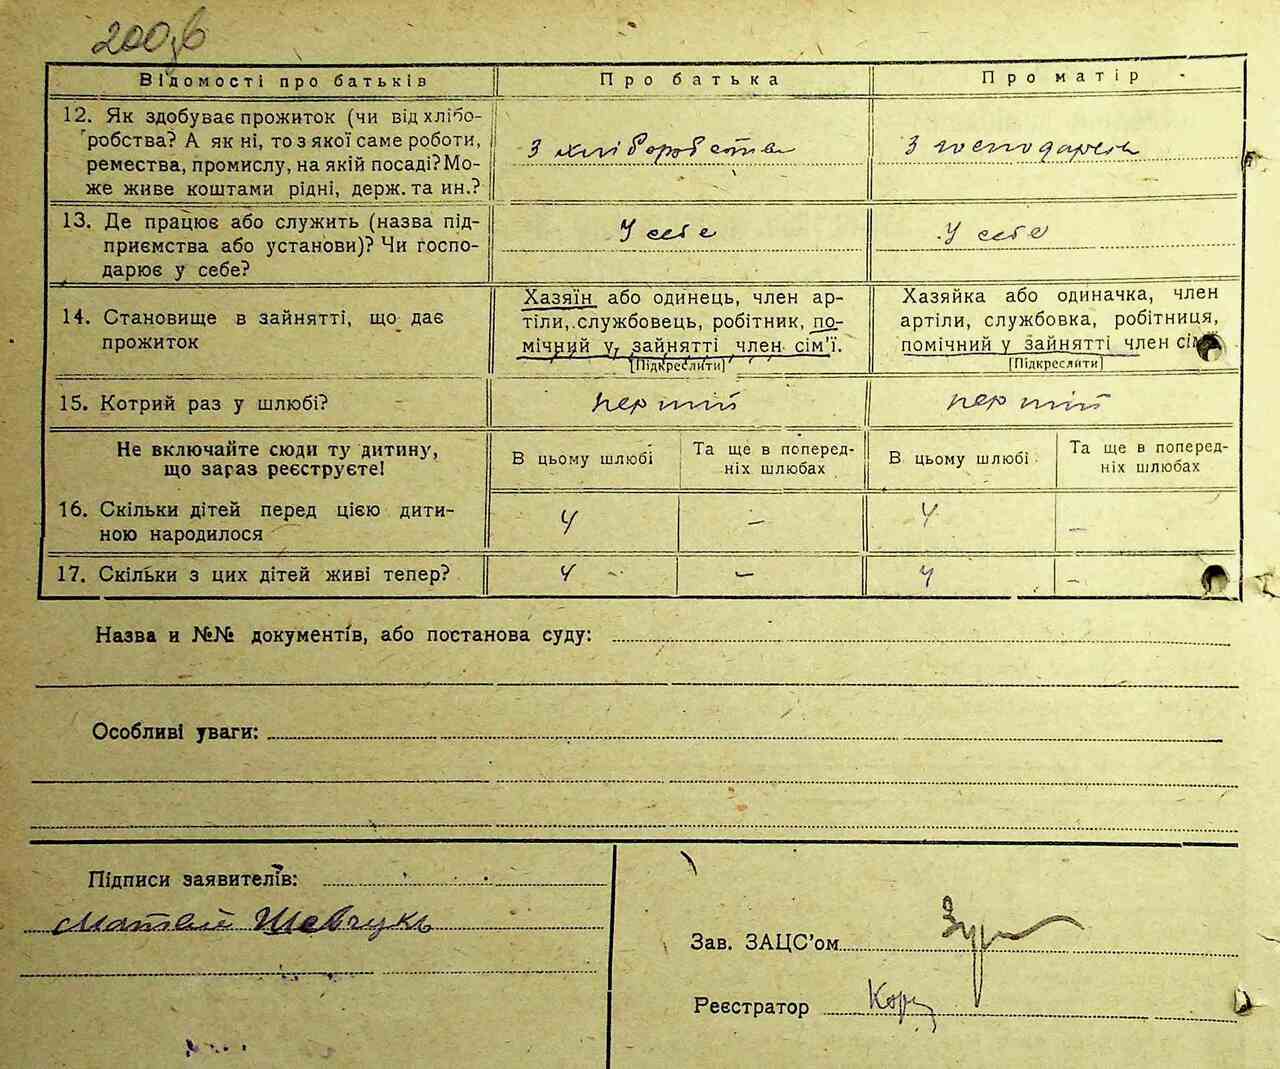 200зв
Відомості про батьків
Про батька
Про матір
12. Як здобуває прожиток (чи від хлібо-
робства? А як ні, то з якої саме роботи,
ремества, промислу, на якій посаді? Мо-
же живе коштами рідні, держ. та ин.?
З хліборобства
З господарства
13. Де працює або служить (назва під-
приємства або установи)? Чи госпо-
дарює у себе?
У себе
У себе
14. Становище в зайнятті, що дає
прожиток
Хазяїн або одинець, член ар-
тіли, службовець, робітник, по-
мічний у зайнятті член сім'ї.
[Підкреслити]
Хазяйка або одиначка, член
артіли, службовка, робітниця,
помічний у зайнятті член сім
[Підкреслити]
15. Котрий раз у шлюбі?
перший
перший
Не включайте сюди ту дитину,
що зараз реєструєте!
В цьому шлюбі
Та ще в поперед-
ніх шлюбах
В цьому шлюбі
Та ще в поперед-
ніх шлюбах
16. Скільки дітей перед цією дити-
ною народилося
4
–
4
–
17. Скільки з цих дітей живі тепер?
4
–
4
–
Назва и №№ документів, або постанова суду:
Особливі уваги:
Підписи заявителів:
Матвій Шевчукъ
Зав. ЗАЦС'ом
Реєстратор